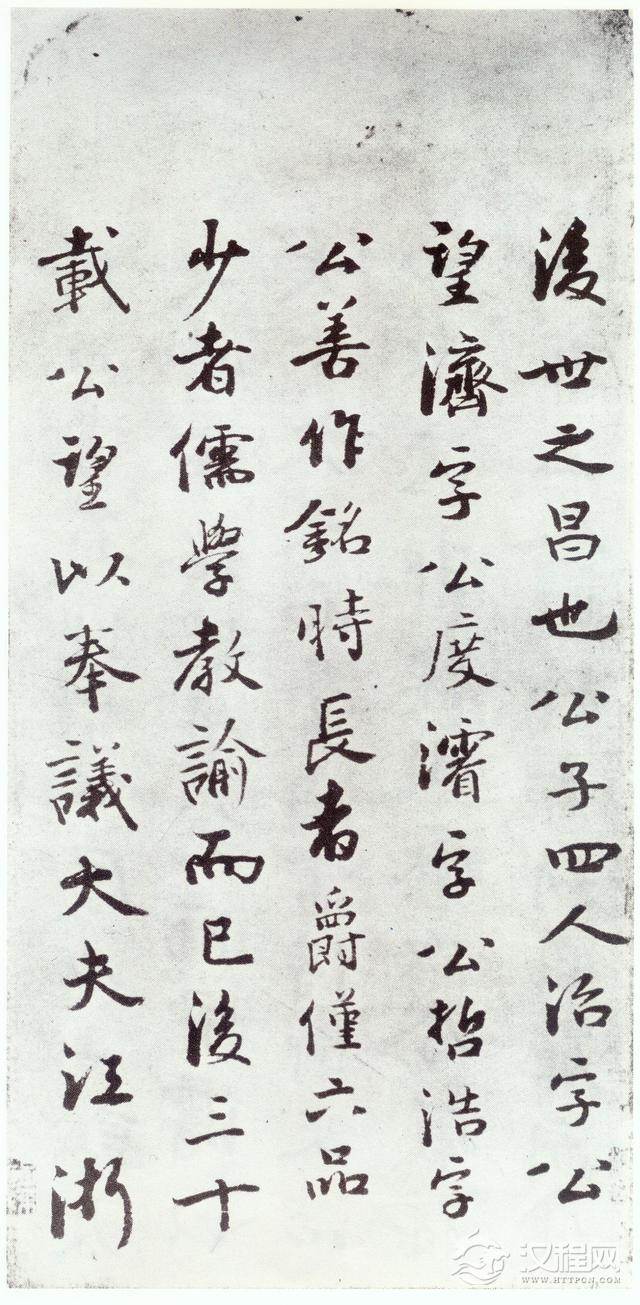 後世之昌也公子四人治字公
望濟字公度濬字公哲浩字
公善作銘時長者爵僅六品
少者儒學教諭而已後三十
載公望以奉議大夫江浙
汉程网
WWW.HTTPCN.COM